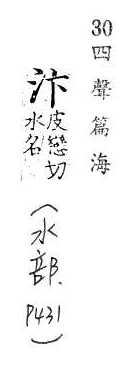 30四聲篇海
汴皮變切
水名
(水部.
P431)